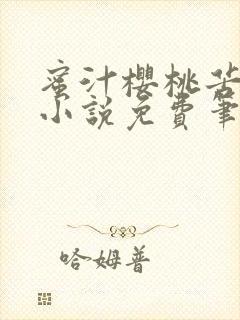 蜜汁樱桃苦
小说免费笔
哈姆普